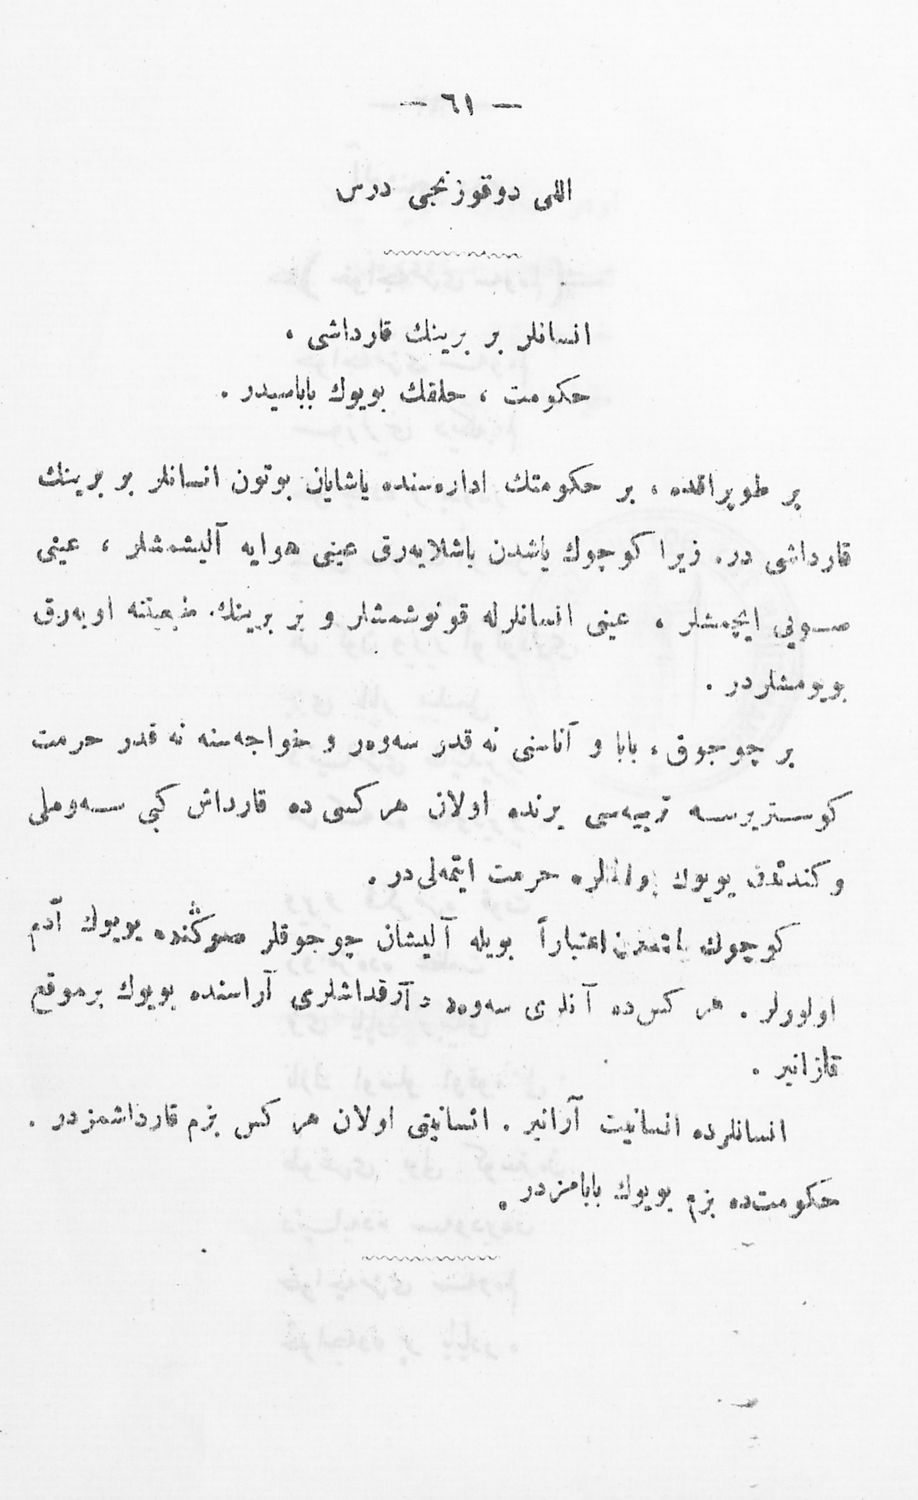 — ٦١ —
اللی دوقوزنجی درس
انسانلر بر برینك قارداشی ،
حكومت ، خلقك بویوك باباسیدر .
بر طوپراقده ، بر حكومتك اداره‌سنده یاشایان بوتون انسانلر بر برینك
قارداشی در. زیرا كوچوك یاشدن باشلایه‌رق عینی هوایه آلیشمشلر ، عینی
صـویی ایچمشلر ، عینی انسانلرله قونوشمشلر و بر برینك
بویومشلردر .
بر چوجوق ، بابا و آناسنی نه قدر سه‌وه‌ر و خواجه‌سنه نه قدر حرمت
كوسـتریرسـه تربیه‌سی یرنده اولان هركسی ده قارداش كبی سـه‌وملی
و كندندن بویوك اولانلره حرمت ایتمه‌لی در .
كوچوك یاشدن اعتباراً بویله آلیشان چوجوقلر صوڭنده بویوك آدم
اولورلر . هر كس‌ده آنلری سه‌وه‌ر آرقداشلری آراسنده بویوك برموقع
قازانیر .
انسانلرده انسانیت آرانیر . انسانیتی اولان هر كس بزم قارداشمزدر .
حكومت‌ده بزم بویوك بابامزدر .